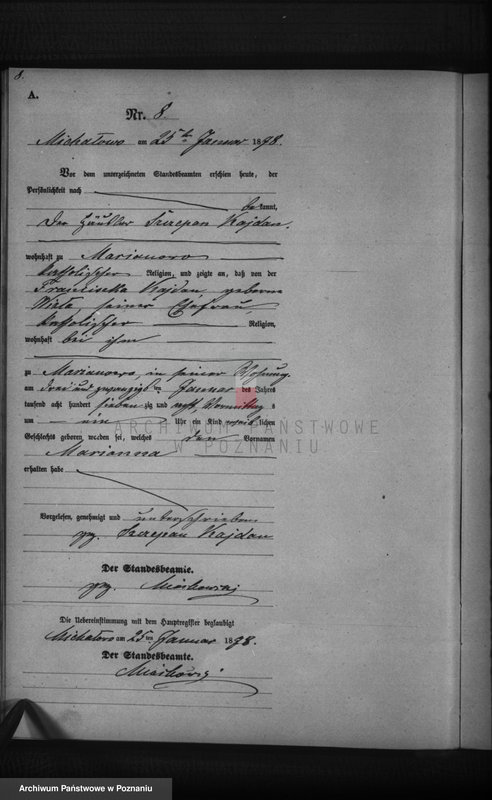 8.
A.
Nr. 8
Michałowo am 25ten Januar 1878.
Vor dem unterzeichneten Standesbeamten erschien heute, der
Persönlichkeit nach
bekannt,
der Häusler Szczepan Kajdan,
wohnhaft zu Marianowo
katholischer Religion, und zeigte an, daß von der
Franciszka Kajdan geborene
seiner Ehefrau,
katholischer Religion,
wohnhaft bei ihm
zu Marianowo, in seiner Wohnung
am drei und zwanzigsten Januar des Jahres
tausend acht hundert siebenzig und acht Vormittag s
um ein Uhr ein Kind weiblichen
Geschlechts geboren worden sei, welches den Vornamen
Marianna
erhalten habe
Vorgelesen, genehmigt und unterschrieben
gez. Szczepan Kajdan
Der Standesbeamte.
gez.
Die Uebereinstimmung mit dem Hauptregister beglaubigt
Michałowo am 25ten Januar 1878.
Der Standesbeamte.
ARCHIWUM PAŃSTWOWE
W POZNANIU
Archiwum Państwowe w Poznaniu